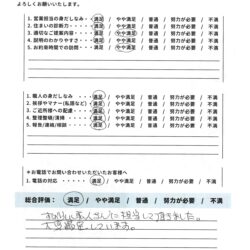 よろしくお願いいたします。
1. 営業担当の身だしなみ・・ 満足 / やや満足 / 普通 / 努力が必要 / 不満
2. 住まいの診断力・・・・ 満足 / やや満足 / 普通 / 努力が必要 / 不満
3. 適切なご提案内容・・・ 満足 / やや満足 / 普通 / 努力が必要 / 不満
4. 説明のわかりやすさ・・ 満足 / やや満足 / 普通 / 努力が必要 / 不満
5. お約束時間での訪問・・ 満足 / やや満足 / 普通 / 努力が必要 / 不満
1. 職人の身だしなみ・・・ 満足 / やや満足 / 普通 / 努力が必要 / 不満
2. 挨拶やマナー(私語など) 満足 / やや満足 / 普通 / 努力が必要 / 不満
3. ご近所様への配慮・・・ 満足 / やや満足 / 普通 / 努力が必要 / 不満
4. 整理整頓(清掃)・・・ 満足 / やや満足 / 普通 / 努力が必要 / 不満
5. 報告/連絡/相談・・・ 満足 / やや満足 / 普通 / 努力が必要 / 不満
*お電話でお問い合わせいただいたお客様へ
1. 電話の対応・・・・ 満足 / やや満足 / 普通 / 努力が必要 / 不満
総合評価: 満足 / やや満足 / 普通 / 努力が必要 / 不満
職人さんに担当して頂きました。
大変満足しています。